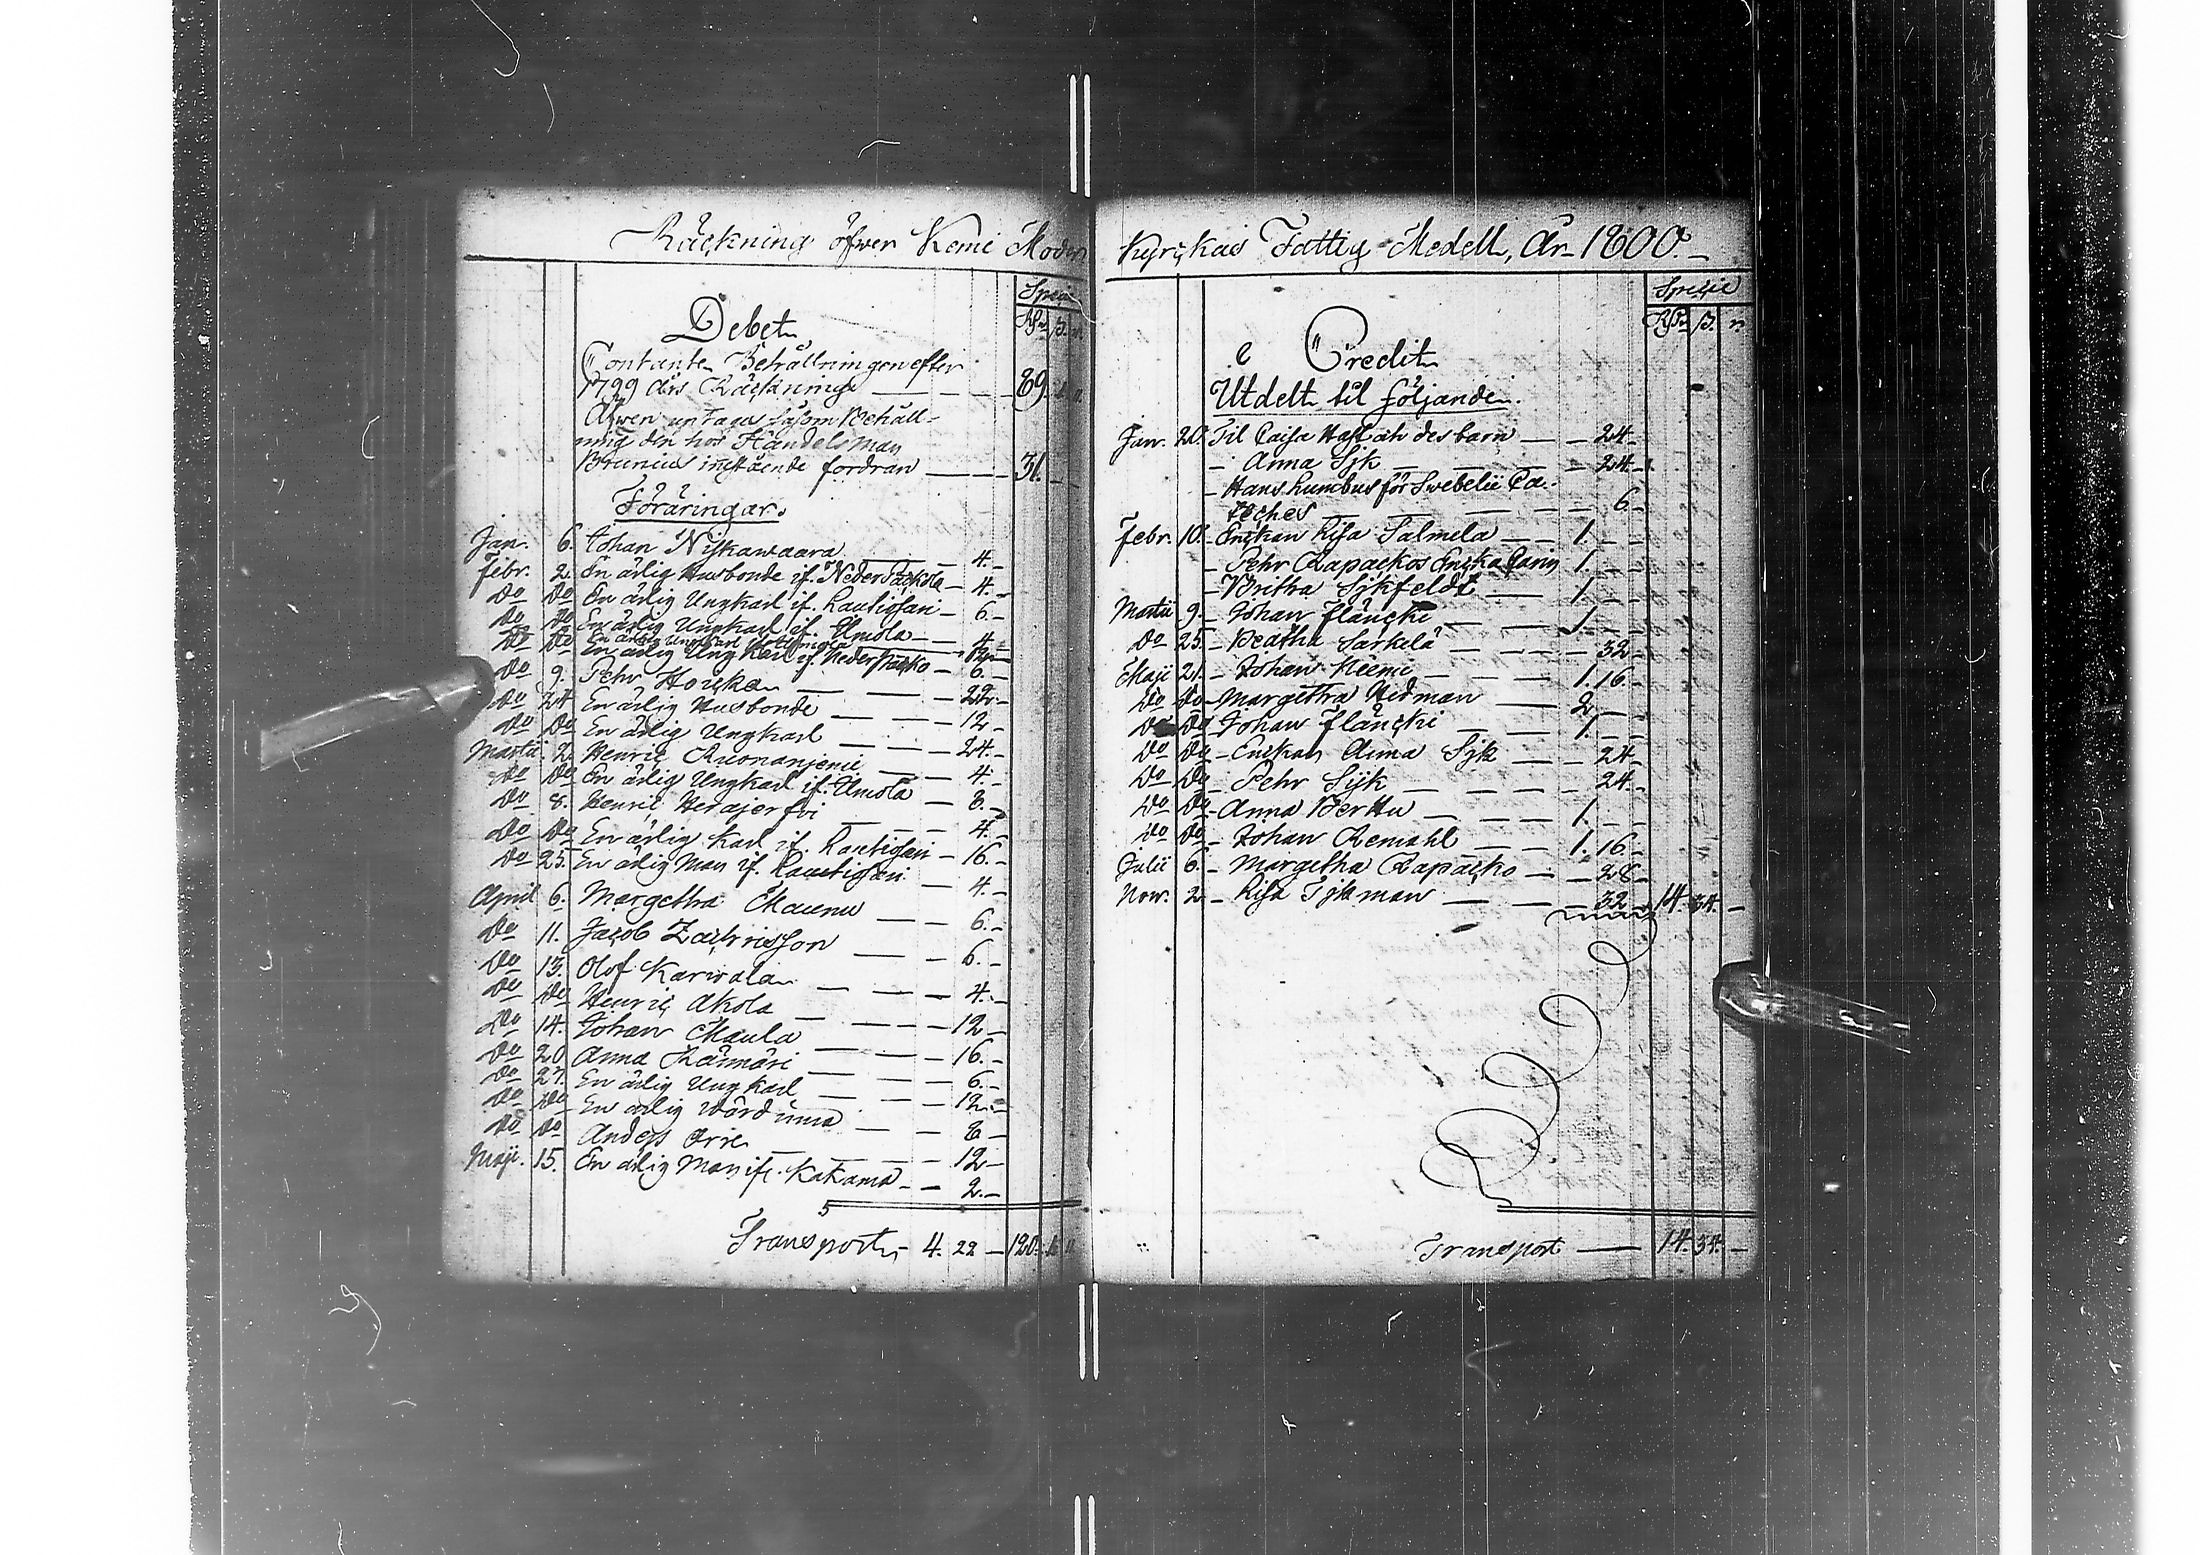 Räckning öfwer Kemi Moder
Specie
Debet
Contante Behållningen efter
1799 års Räckning — 89.
Äfwen uptages såsom Behåll-
ning den hos Handelsman
Brunius innestående fordran — 31.
Föräringar.
Jan. 6. Johan Niskawaara — 4. —
Febr. 2. En ärlig Husbonde if. Neder Packola — 4. —
Do Do En ärlig Ungkarl if. Lautiosari — 6. —
Do Do En ärlig Ungkarl if. Elmola — 4
Do Do En ärlig Ungkarl if. Neder — 6. —
Do 9. Pehr — 22. —
Do 24 En ärlig Husbonde — 12 —
Do Do En ärlig Ungkarl — 24. —
Martii 2. Henric Ruonanjemi — 4. —
Do Do En ärlig Ungkarl if. Elmola — 8. —
Do 8. Henric Herajerfvi — 4. —
Do Do En ärlig Karl if. Lautiosari — 16. —
Do 25. En ärlig Man if. Lautiosari — 4. —
April 6. Margetha Maunu — 6. —
Do 11. Jacob Zachrisson — 6. —
Do 13. Olof Karwala — 4. —
Do Do Henric Akola — 12 —
Do 14. Johan Maula — 16. —
Do 20 Anna — 6. —
Do 27. En ärlig Ungkarl — 12. —
Do Do En ärlig Wärdinna — 8 —
Do Do Anders Arie — 12 —
Maji. 15. En ärlig Man if. Kakama — 2. —
Transport 4. 22 — 120.
Kyrckas Fattig Medell, År 1800. —
Specie
Credit
Utdelt til följande.
Jan. 20. Til Caisa Hast och des barn — 24 —
— Anna Sjk — 24. —
— Hans Lumbus för Swebelii Ca-
teches — 6 —
Febr. 10. — Enckan Lisa Salmela — 1. —
— Pehr Rapackos Encka Carin 1. —
— Britha Sjkfeldt — 1. —
Martii 9. — Johan Fläncki — 1. —
Do 25. — Beatha Särkelä — 32 —
Maji 21. — Johan Niemi — 1. 16. —
Do Do — Margetha Hedman — 2 —
Do Do — Johan Fläncki — 1. —
Do Do — Enckan Anna Sjk — 24 —
Do Do — Pehr Sijk — 24. —
Do Do — Anna Berttu — 1. —
Do Do — Johan Remahl — 1. 16. —
Julii 6. — Margetha Rapacko — 28 —
Now. 2 — Lisa Sjkman — 32 — 14. 34. —
Transport — 14. 34. —